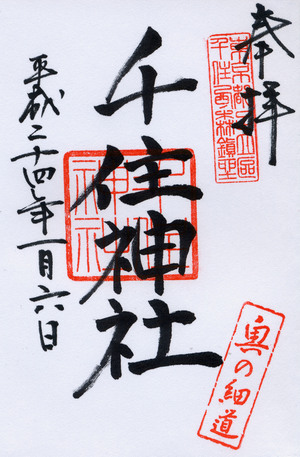 奉拝
東京都足立区
千住西森鎮座
千住神社
千住
神社
平成二十四年一月六日
奥の細道